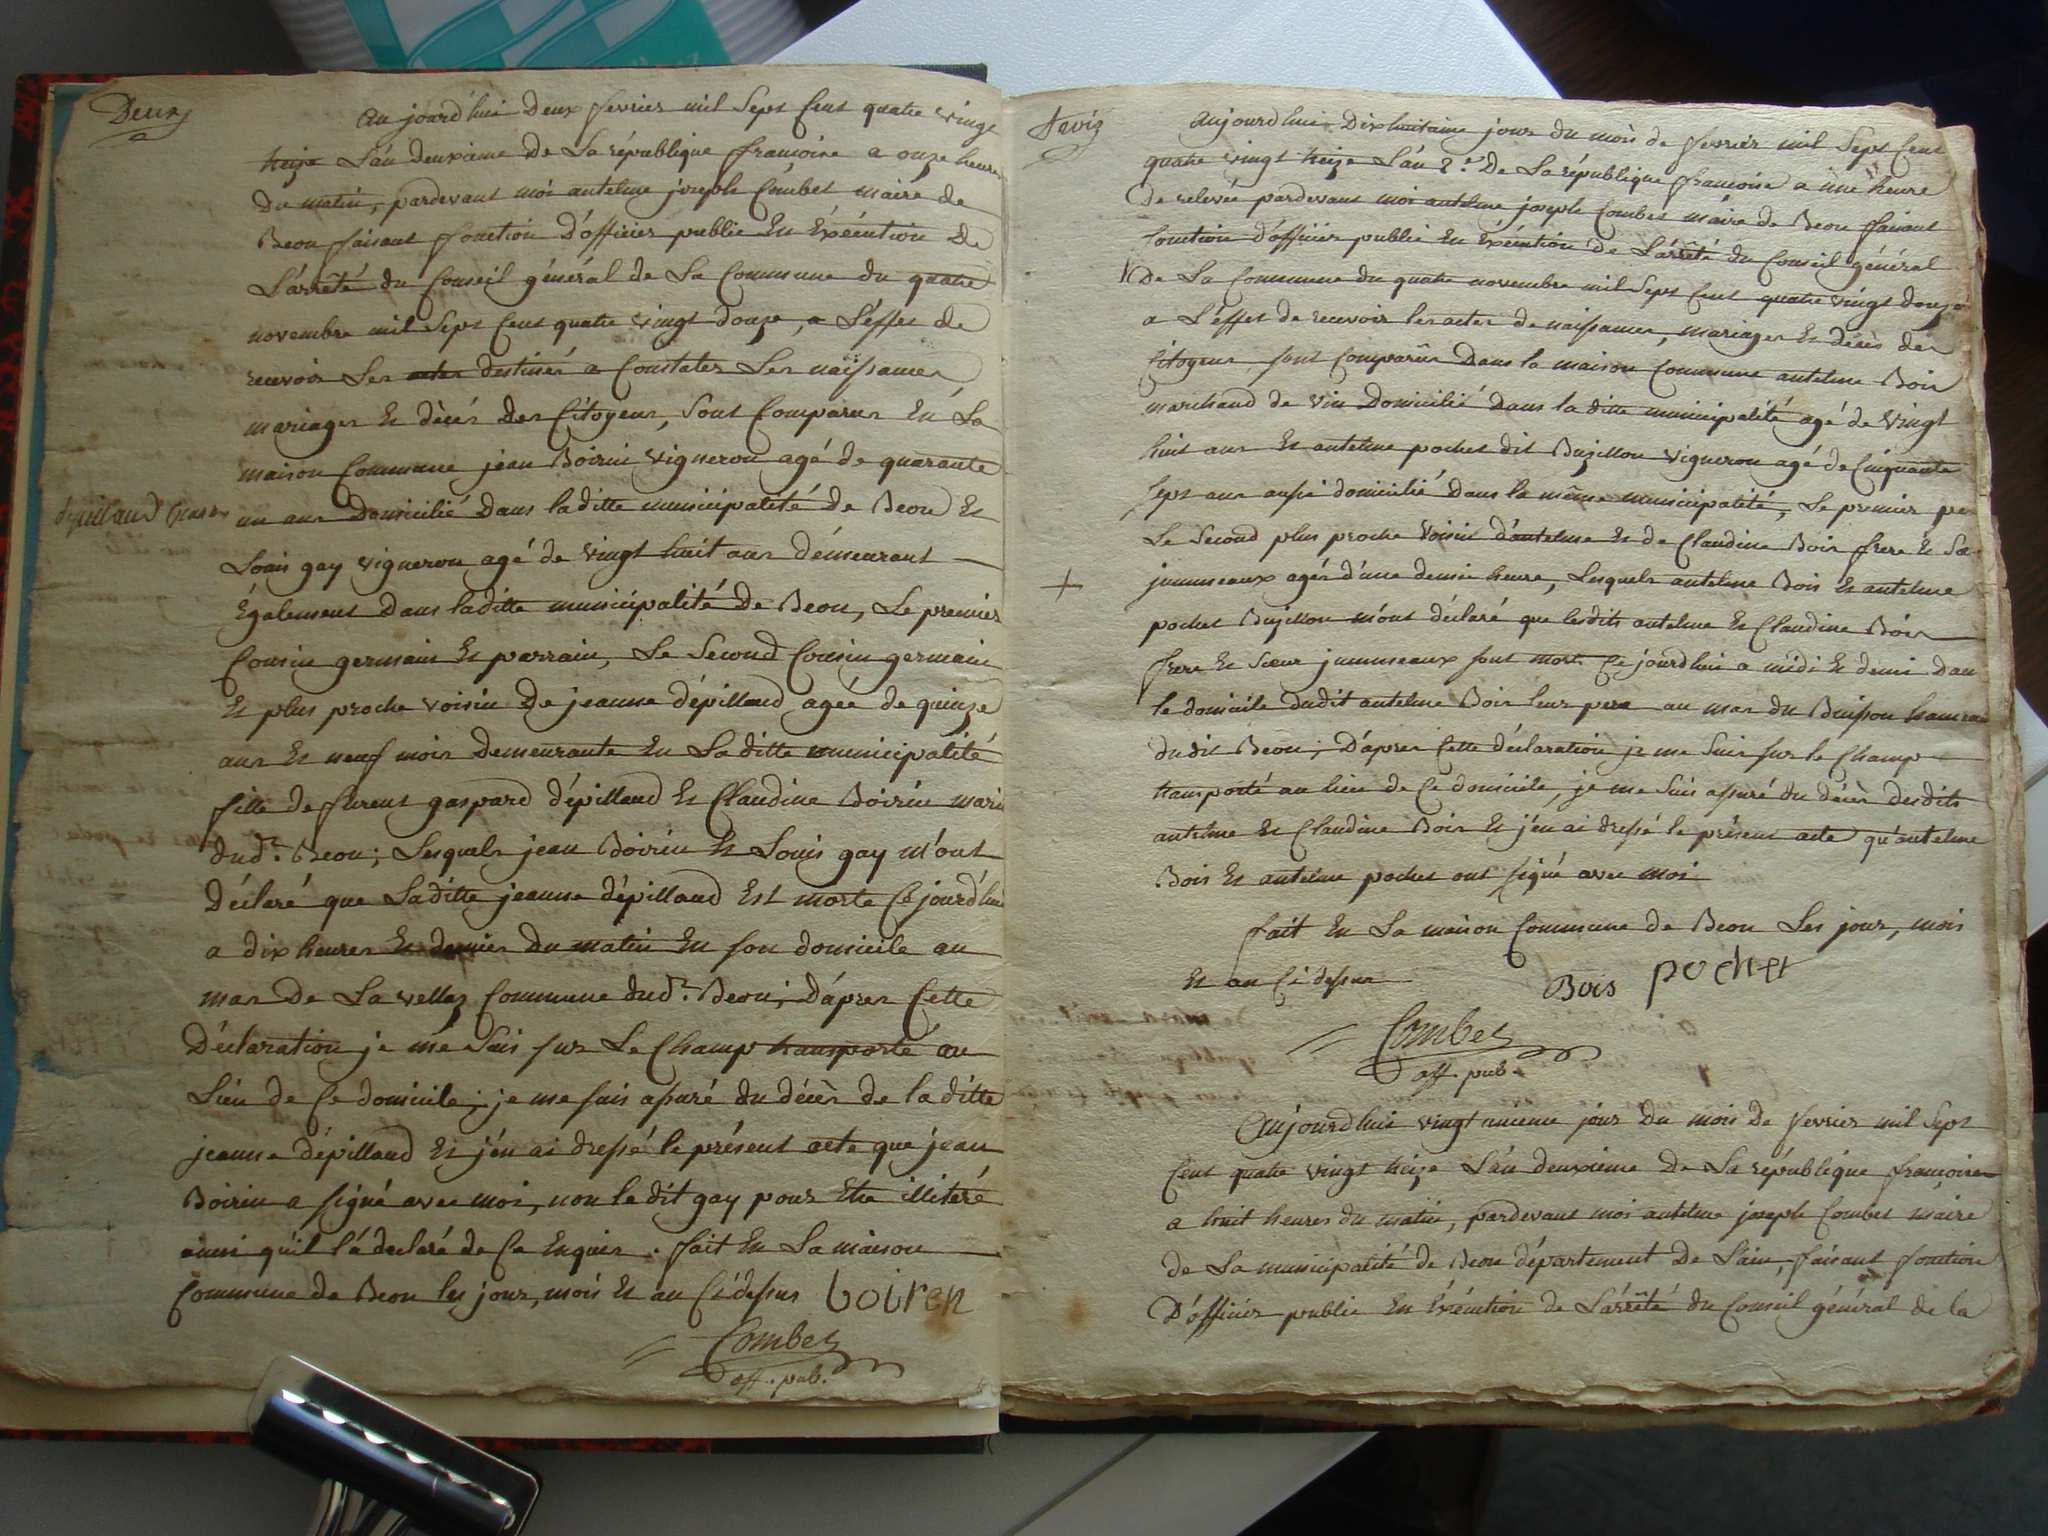 Deux
Aujourd'hui deux fevrier mil sept Cent quatre vingt
treize L'an deuxieme de La république françoise a onze heures
du matin, pardevant moi antelme joseph Combet maire de
Beon faisant fonction d'officier public En Exécution de
L'arrêté du Conseil général de La Commune du quatre
novembre mil Sept Cent quatre vingt douze, a L'effet de
recevoir Les actes destinés a Constater Les naissances
mariages Et décès des Citoyens, Sont Comparus En La
maison Commune jean Boirin vigneron agé de quarante
un ans Domicilié Dans laditte municipalité de Beon Et
Louis gay vigneron agé de vingt huit ans démeurant
Également Dans laditte municipalité de Beon, Le premier
Cousin germain Et parrain, Le Second Cousin germain
Et plus proche voisin De jeanne dépilland agée de quinze
ans Et neuf mois Demeurante En La ditte municipalité
fille de furent gaspard dépilland Et Claudine Boirin mari
dud.t Beon; Lesquels jean Boirin Et Louis gay m'ont
Déclaré que Laditte jeanne dépilland Est morte Cejourd'hui
a dix heures Et demies du matin En son domicile au
mas De La vellaz Commune dud.t Beon; D'après Cette
Déclaration je me Suis sur Le Champ transporté au
Lieu de Ce domicile; je me suis assuré du décès de la ditte
jeanne dépilland Et j'en ai dressé le présent acte que jean
Boirin a signé avec moi, non le dit gay pour Etre illiteré
ainsi qu'il l'a declaré de Ce Enquis. fait En La maison
Commune de Beon les jour, mois Et an Ci dessus boiren
Combet
off. pub.
dépilland
Aujourdhui Dixhuitaime jour du mois de fevrier mil Sept Cent
quatre vingt treize L'an 2.e De La république françoise a une heure
De relevée pardevant moi antelme joseph Combet maire de Beon faisant
fonction d'officier public En Exécution de L'arrêté du Conseil général
De La Commune du quatre novembre mil Sept Cent quatre vingt douze
a L'effet de recevoir les actes de naissances, mariages Et décès des
Citoyens, sont Comparus Dans la maison Commune antelme Bois
marchand de vin Domicilié Dans la ditte municipalité agé de vingt
huit ans Et antelme pochet dit Bujillon vigneron agé de Cinquante
Sept ans aussi domicilié Dans la même municipalité, Le premier pe
Le Second plus proche voisin d'antelme Et de Claudine Bois frere Et Sœ
+ jummeaux agés d'une demie heure, Lesquels antelme Bois Et antelme
pochet Bujillon m'ont déclaré que lesdits antelme Et Claudine Bois
frere Et Sœur jummeaux sont mort Ce jourd'hui a midi Et demi dan
le domicile dudit antelme Bois leur pere au mas du Buisson hameau
dudit Beon; D'après Cette déclaration je me Suis sur le Champ
transporté au lieu de Ce domicile, je me Suis assuré du décès desdits
antelme Et Claudine Bois Et j'en ai dressé le présent acte qu'antelme
Bois Et antelme pochet ont signé avec moi
fait En La maison Commune de Beon Les jour, mois
Et an Ci dessus
Bois pochet
Combet
off. pub.
Aujourdhui vingt unieme jour Du mois de fevrier mil Sept
Cent quatre vingt treize L'an deuxième de La république françoise
a huit heures du matin, pardevant moi antelme joseph Combet maire
de La municipalité de Beon département de L'ain, faisant fonction
D'officier public En Exécution de L'arrêté du Conseil général de la